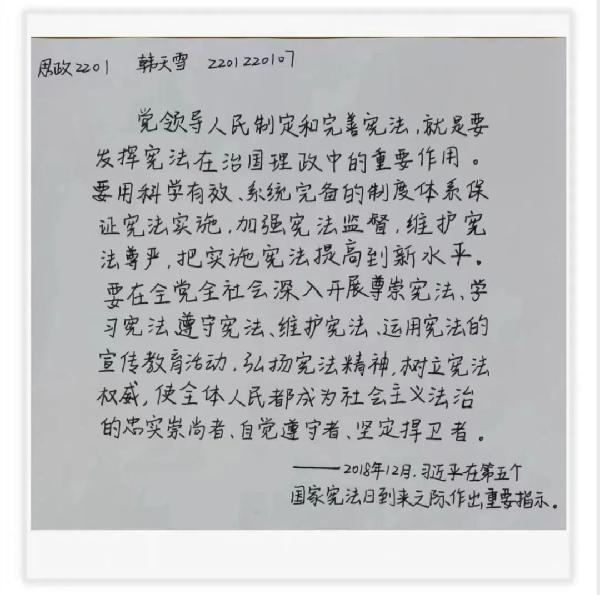 思政2201 韩天雪 2201220107
党领导人民制定和完善宪法,就是要
发挥宪法在治国理政中的重要作用。
要用科学有效、系统完备的制度体系保
证宪法实施,加强宪法监督,维护宪
法尊严,把实施宪法提高到新水平。
要在全党全社会深入开展尊崇宪法、学
习宪法遵守宪法、维护宪法、运用宪法的
宣传教育活动,弘扬宪法精神,树立宪法
权威,使全体人民都成为社会主义法治
的忠实崇尚者、自觉遵守者、坚定捍卫者。
——2018年12月,习近平在第五个
国家宪法日到来之际作出重要指示。